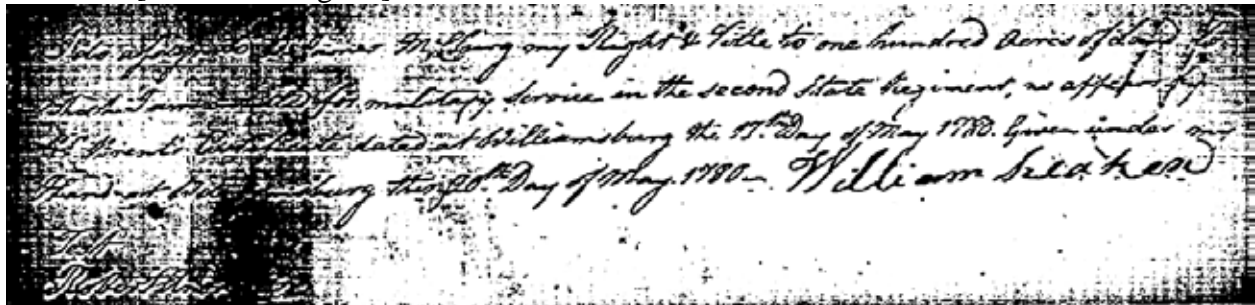 I do assign to James Milburg my Right & Title to one hundred Acres of Land to
which I am entitled for military Service in the second State Regiment, as appears by
Certificate dated at Williamsburg the 17th Day of May 1780. Given under my
Hand at Williamsburg this 20th Day of May 1780.. William
Robert